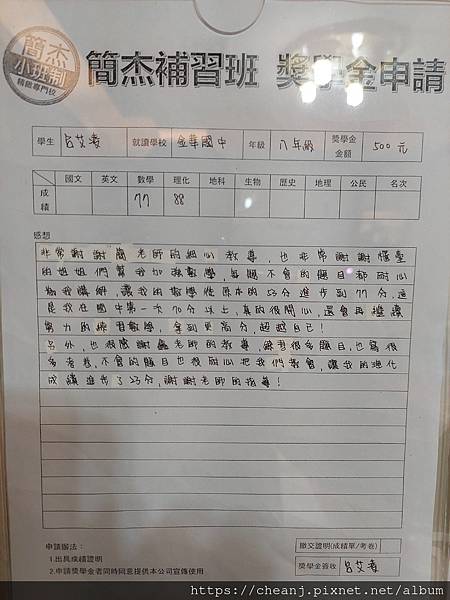 簡杰
小班制
精緻專門校
簡杰補習班 獎學金申請
學生 呂艾凌 就讀學校 金華國中 年級 八年級 獎學金金額 500元
國文 英文 數學 理化 地科 生物 歷史 地理 公民 名次
成績 77 88
感想
非常謝謝簡老師的細心教導,也非常謝謝櫃臺
的姐姐們幫我加強數學,每題不會的題目都耐心
教我講解,讓我的數學從原本的53分進步到77分,這
是我在國中第一次70分以上,真的很開心,還會再繼續
努力的練習數學,拿到更高分,超越自己!
另外,也很感謝 老師的教導,錄 很多題目,也寫很
多考卷,不會的題目也很耐心把我們教會,讓我的理化
成績進步了23分,謝謝老師的指導!
申請辦法:
1.出具成績證明
2.申請獎學金者同時同意提供本公司宣傳使用
繳交證明(成績單/考卷)
獎學金簽收 呂艾凌
https://cheanj.pixnet.net/album